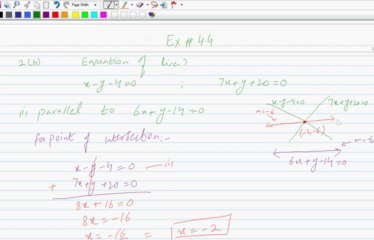 Page Width
Ex # 4.4
2(b) Equation of line?
x-y-4=0 ; 7x+y+20=0
(i) parallel to 6x+y-14=0
for point of intersection:-
x-y-4=0 — (i)
+ 7x+y+20=0
8x+16=0
8x=-16
x=-16 = x=-2
x-y-4=0
7x+y+20=0
m=-6
(-2,-6)
m=-6
6x+y-14=0